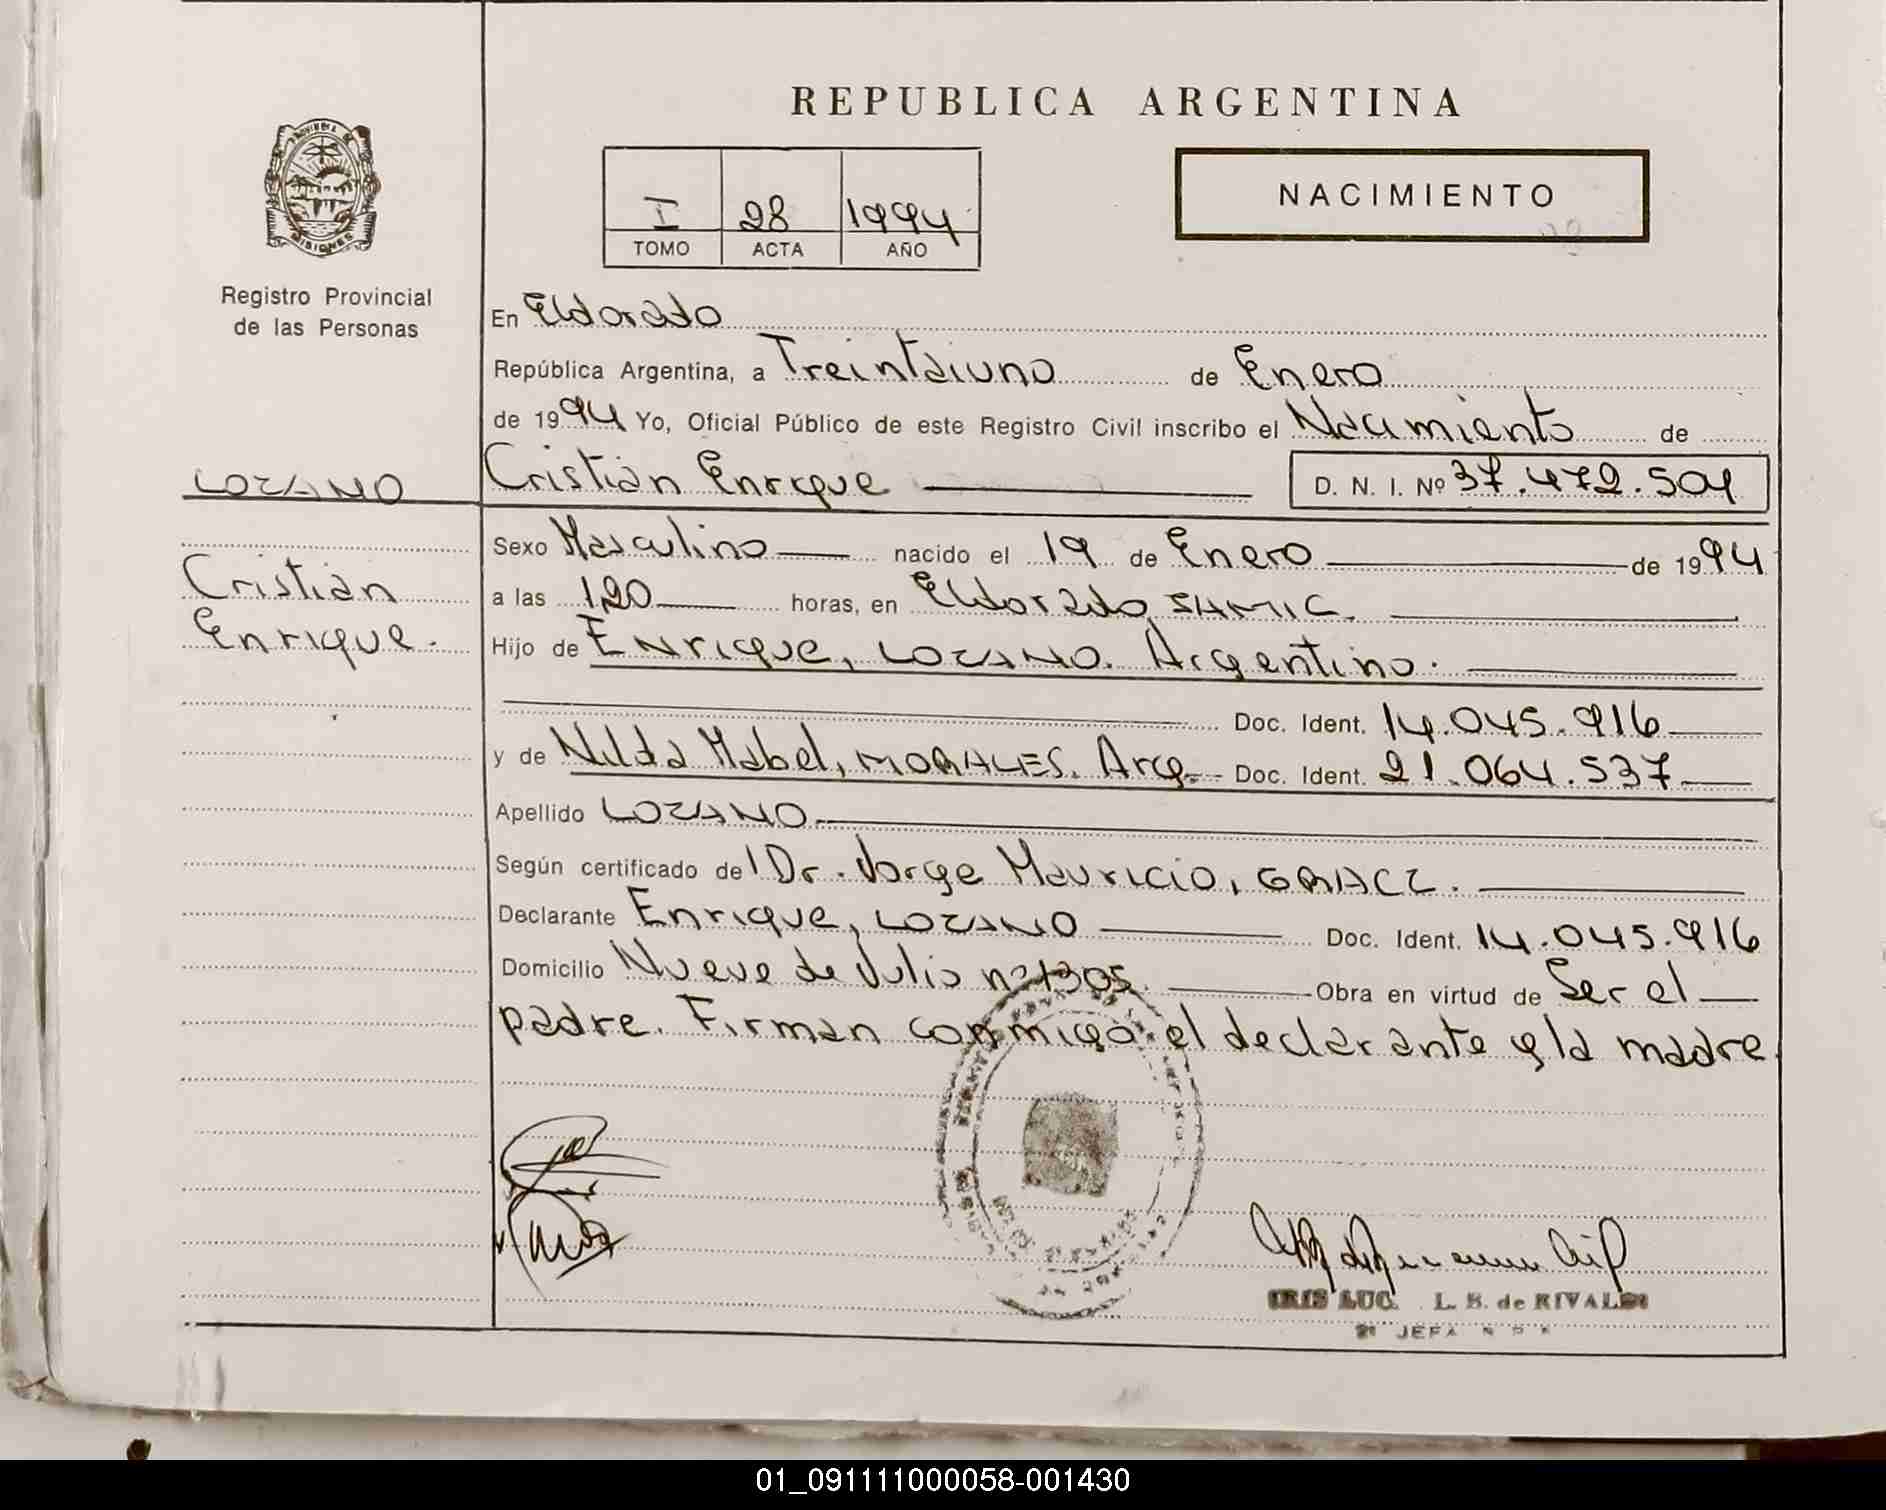 REPUBLICA ARGENTINA
PROVINCIA DE
MISIONES
Registro Provincial
de las Personas
I 28 1994
TOMO ACTA AÑO
NACIMIENTO
En Eldorado
República Argentina, a Treintaiuno de Enero
de 1994 Yo, Oficial Público de este Registro Civil inscribo el Nacimiento de
LOZANO
Cristian Enrique D. N. I. Nº 37.472.501
Sexo Masculino nacido el 19 de Enero de 1994
Cristian
a las 1,20 horas, en Eldorado, SAMIC.
Enrique.
Hijo de Enrique, LOZANO. Argentino.
Doc. Ident. 14.045.916
y de Nilda Mabel, MORALES. Arg. Doc. Ident. 21.064.537
Apellido LOZANO
Según certificado del Dr. Jorge Mauricio, GRACZ.
Declarante Enrique, LOZANO Doc. Ident. 14.045.916
Domicilio Nueve de Julio nº 1305. Obra en virtud de Ser el
padre. Firman conmigo el declarante y la madre.
L. B. de RIVALDI
JEFA
01_091111000058-001430